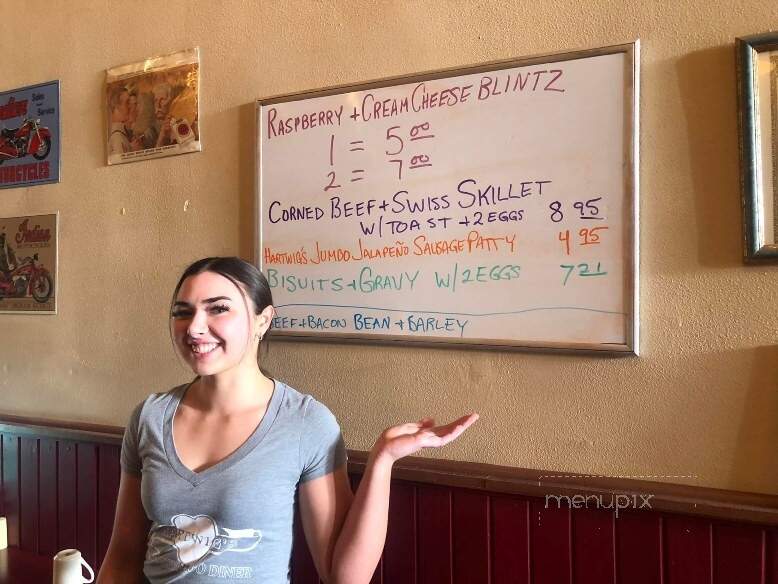 RASPBERRY + CREAM CHEESE BLINTZ
1 = 5 00
2 = 7 00
CORNED BEEF + SWISS SKILLET
W/ TOAST + 2 EGGS 8 95
HARTWIG'S JUMBO JALAPEÑO SAUSAGE PATTY 4 95
BISUITS + GRAVY W/ 2 EGGS 7 21
BEEF + BACON BEAN + BARLEY
Sales
Service
Indian
DINER
menupix